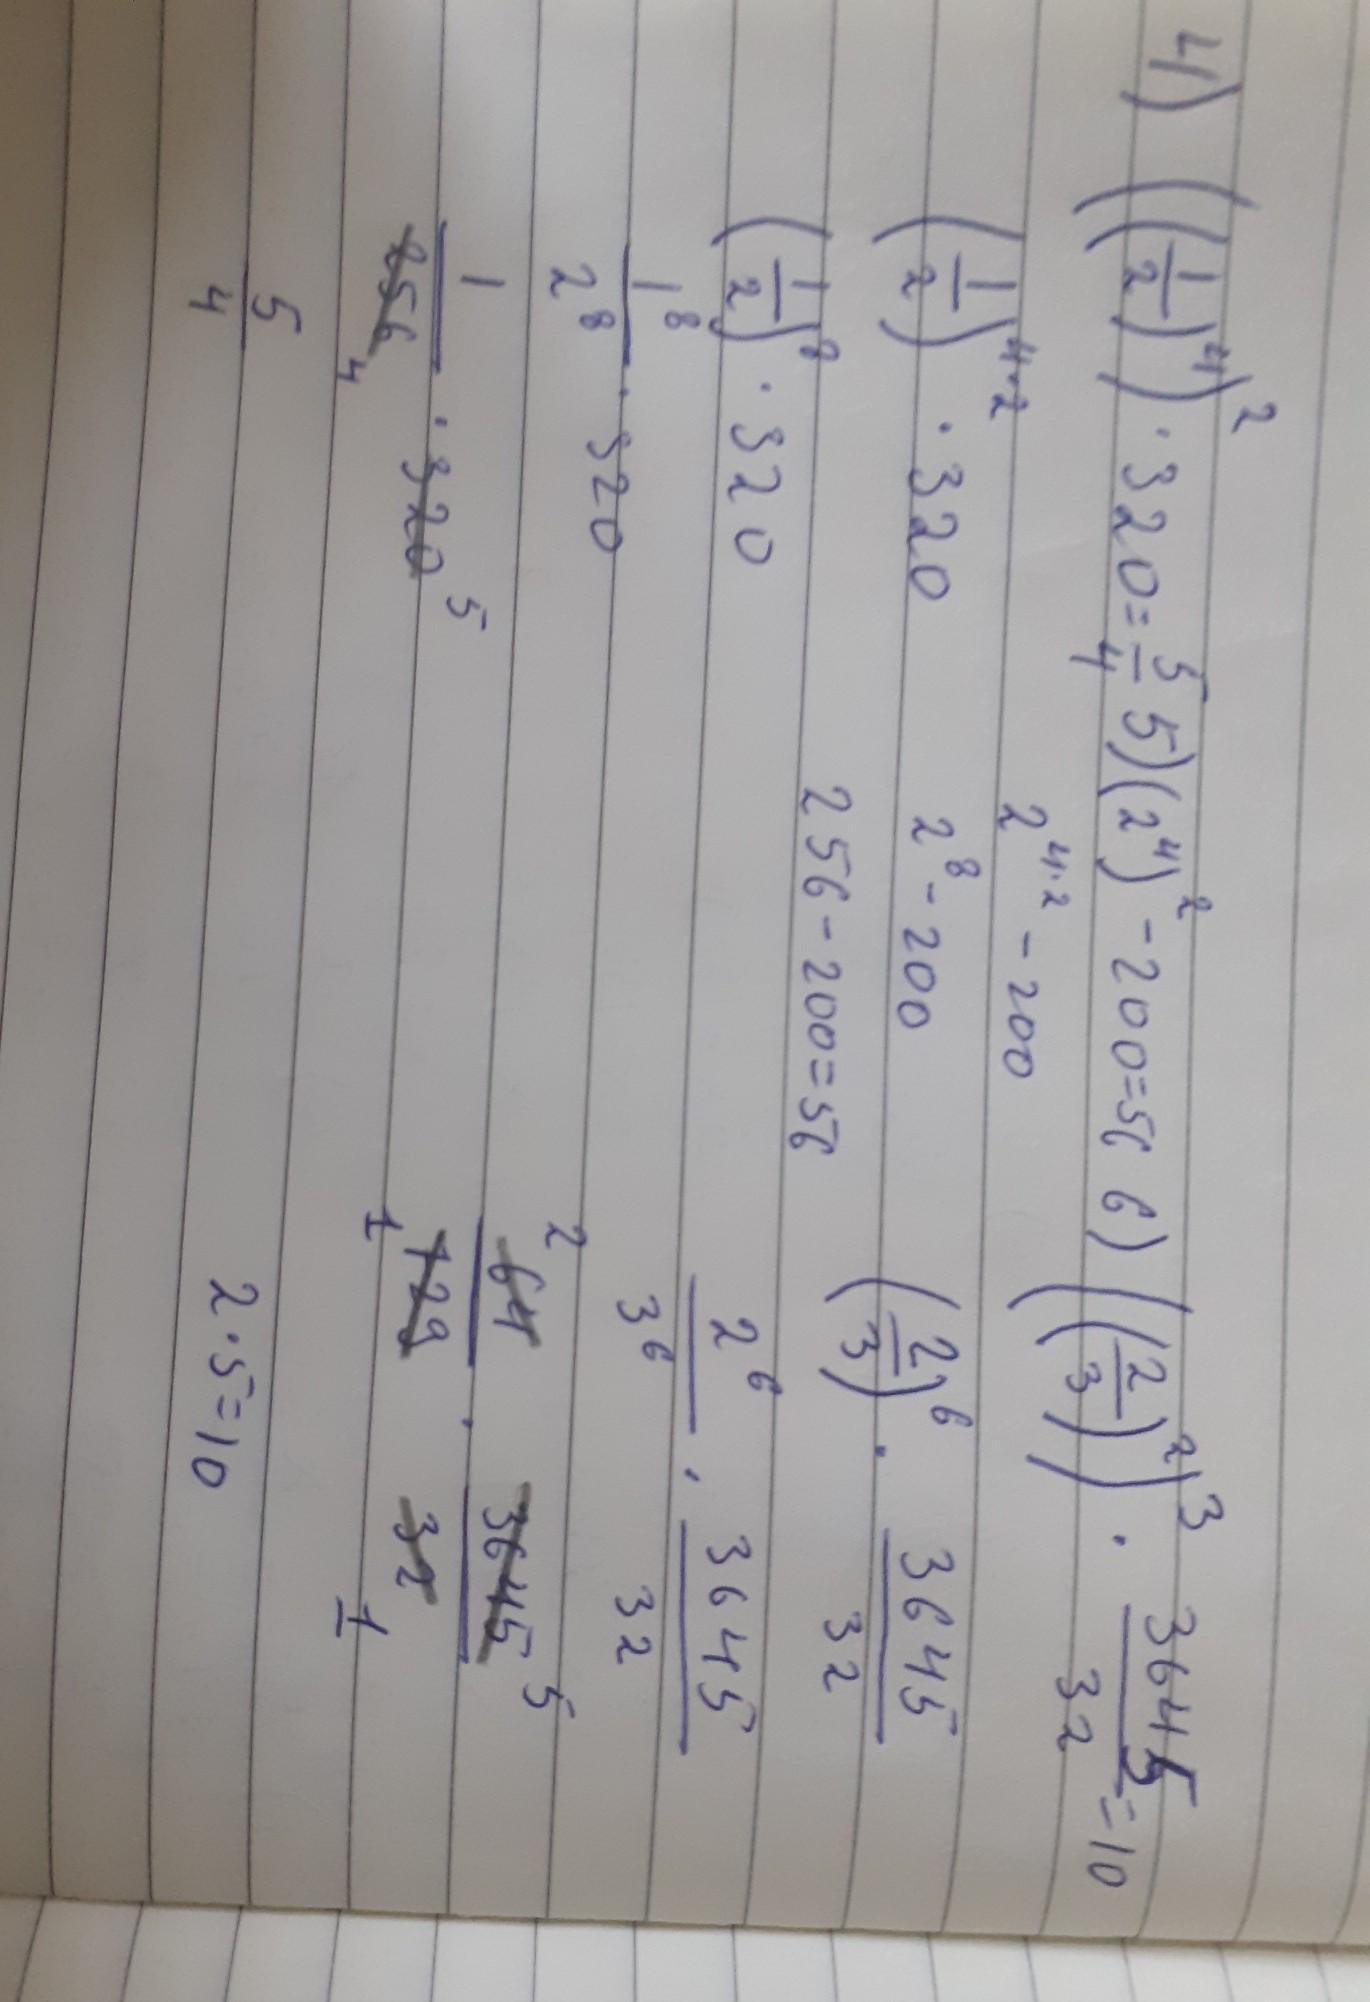 4) ((1/2)^4)^2 · 320 = 5/4 5) (2^4)^2 - 200 = 56 6) ((2/3)^2)^3 · 3645/32 = 10
(1/2)^4·2 · 320
2^4·2 - 200
(2/3)^6 · 3645/32
(1/2)^8 · 320
2^8 - 200
2^6/3^6 · 3645/32
1^8/2^8 · 320
256 - 200 = 56
64 2/729 1 · 3645 5/32 1
1/256 4 · 320 5
2 · 5 = 10
5/4